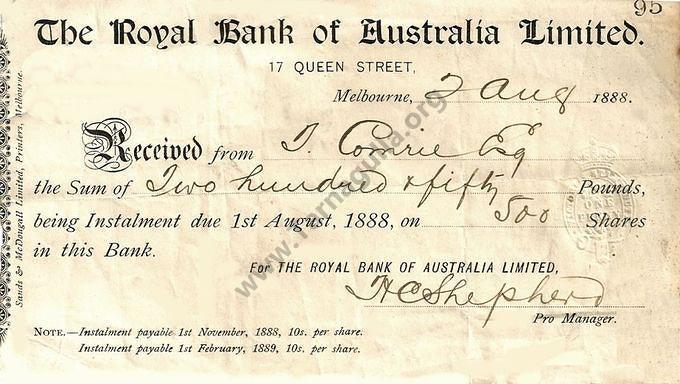 95
The Royal Bank of Australia Limited.
17 QUEEN STREET,
Melbourne, 2 Aug 1888.
Received from T. Comrie Esq
the Sum of Two hundred & fifty Pounds,
being Instalment due 1st August, 1888, on 500 Shares
in this Bank.
For THE ROYAL BANK OF AUSTRALIA LIMITED,
H C Shepherd
Pro Manager.
NOTE.—Instalment payable 1st November, 1888, 10s. per share.
Instalment payable 1st February, 1889, 10s. per share.
Sands & McDougall Limited, Printers, Melbourne.